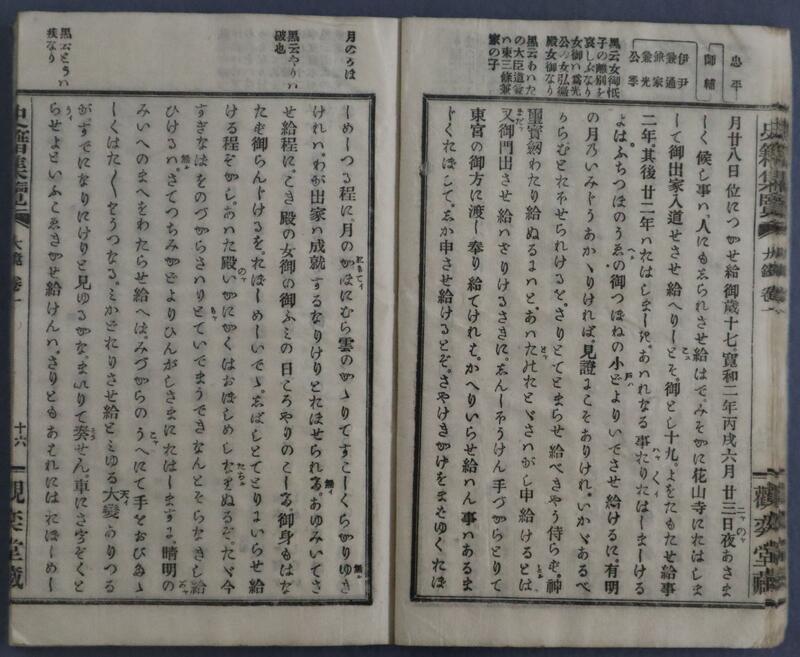 忠平
師輔
伊尹
兼通
兼家
公季
黒云女御忯
子の離別を
哀しふなり
女御ハ爲光
公の女弘徽
殿女御なり
黒云あハた
の大臣道兼
ハ東三條兼
家の子
月廿八日位につかせ給御歳十七。寛和二年丙戌六月廿三日夜あさま
しく候し事ハ、人にもゑられさせ給はで、みそかに花山寺にたはしま
して御出家入道せさせ給へりしとぞ。御とし十九。よをたもたせ給事
二年。其後廿二年ハたはしましき。あハれなる事ハたりたはしましける
よは。ふぢつぼのうゑの御つぼねの小どよりいでさせ給けるに。有明
の月のいみじうあかゝりければ。見證にこそありけれ。いかゞあるべ
からむとたほせられけるを。さりとてとまらせ給べきやう侍らず。神
璽寶劔わたり給ぬるにハと。あハたどのたゞさハがし申給けるとは
又御門出させ給ハざりけるさきに。ゑんしんそうけん手づからとりて
東宮の御方に渡し奉り給てければ。かへりいらせ給ハん事ハあるま
じくたぼして。ゑか申させ給けるとぞ。さやけきかげをまぼゆくたぼ
史籍集覽 大鏡 卷一
觀奕堂藏
月のかほ
黒云やりハ
破也
黒云とうハ
疾なり
しめしつる程に。月のかほにむら雲のかゝりてすこしくらがりゆき
ければ。わが出家ハ成就するなりけりとたぼせられて。あゆみいでさ
せ給程に。こき殿の女御の御ふミの日ころやりのこして。御身もはな
たず御らんじけるを。たぼしめしいでゝ。ゑばしとてとりにいらせ給
ける程ぞかし。あハた殿いかにかくはおぼしめしなりぬるぞ。たゞ今
すぎなばをのづからさハりもいでまうできなんとそらなきし給
ひけるハ。さてつちみかどよりひんがしさまにたはしますに。晴明の
みいへのまへをわたらせ給へば。みづからのうへにて手をおびたゝ
しくはたゝくとうつなる。ミかどたりさせ給とミゆる大變ありつる
がすでになりにけりと見ゆるかな。まいりて奏せん。車にさうぞくと
うせよといふこゑきかせ給けんハ。さりともあハれにはたぼしめし
史籍集覽 大鏡 卷一 十六 觀奕堂藏